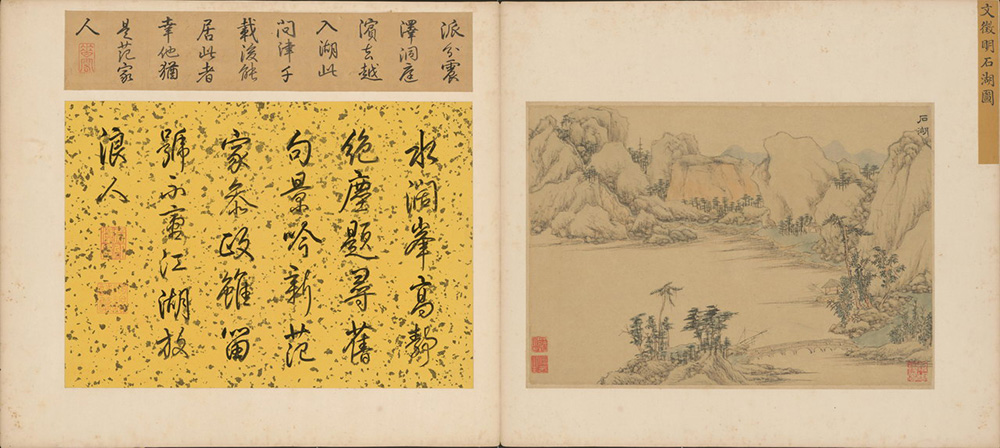 文徵明石湖圖
石湖
派分震
澤洞庭
濱去越
入湖此
問津千
載後能
居此者
幸他猶
是范家
人
水濶峯高靜
絕塵題尋舊
句景吟新范
家叅政雖留
號不江湖放
浪人